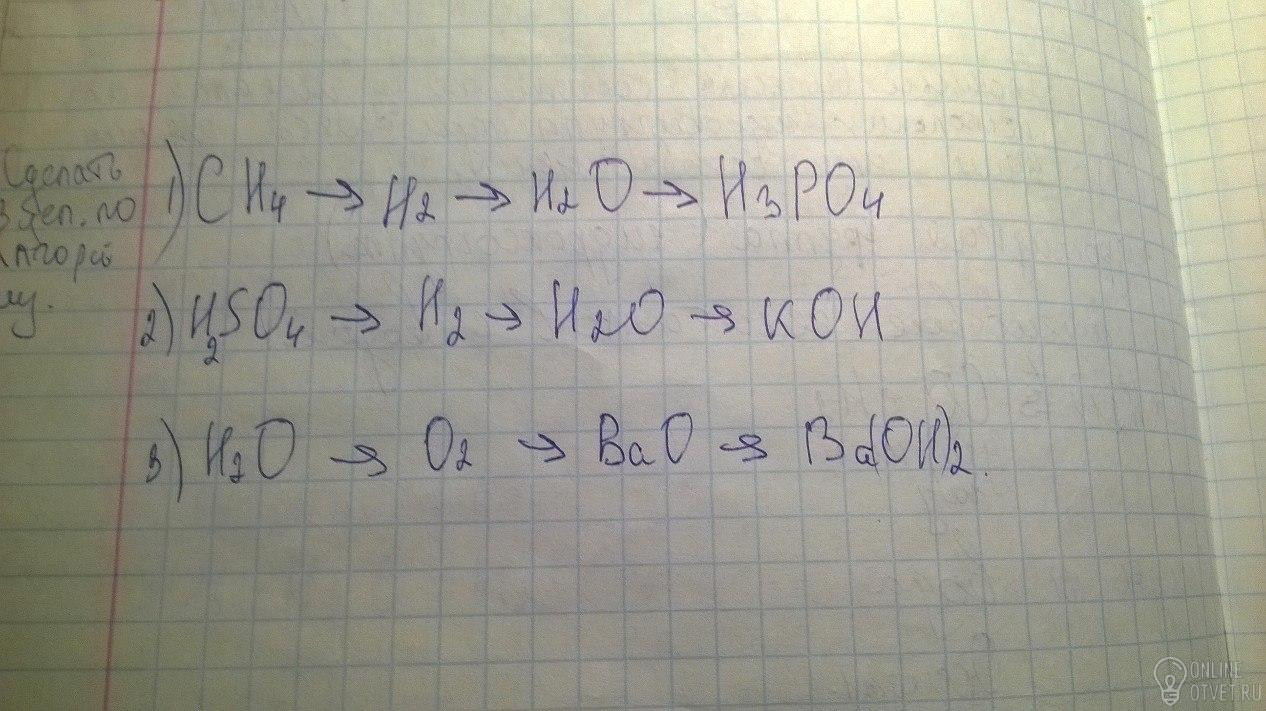 Сделать
3 цеп. по
алгорит
му.
1) CH4 → H2 → H2O → H3PO4
2) H2SO4 → H2 → H2O → KOH
3) H2O → O2 → BaO → Ba(OH)2.
ONLINE
OTVET.RU